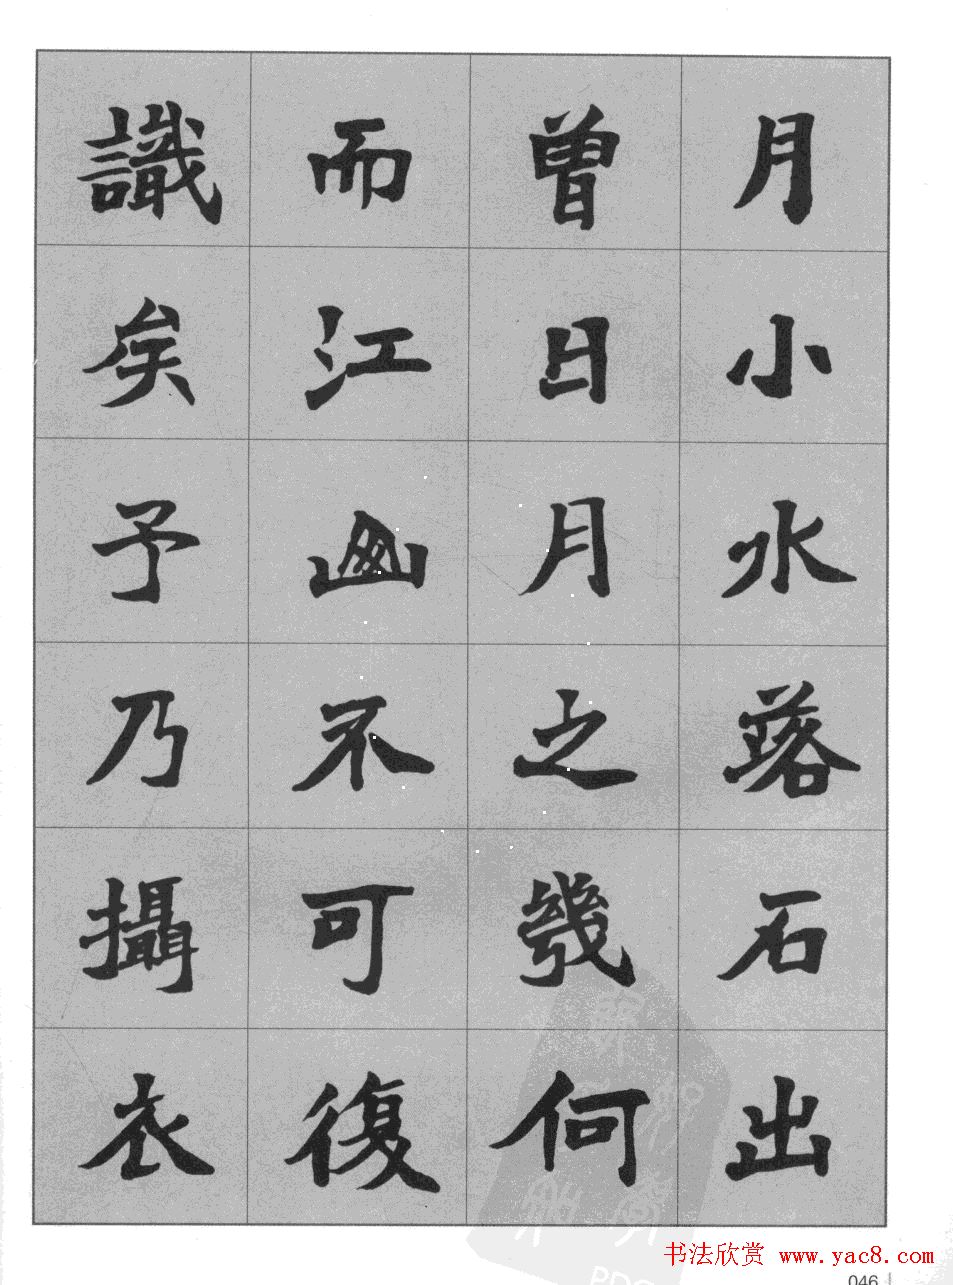 月小水落石出
曾日月之幾何
而江山不可復
識矣予乃攝衣
书法欣赏 www.yac8.com
046